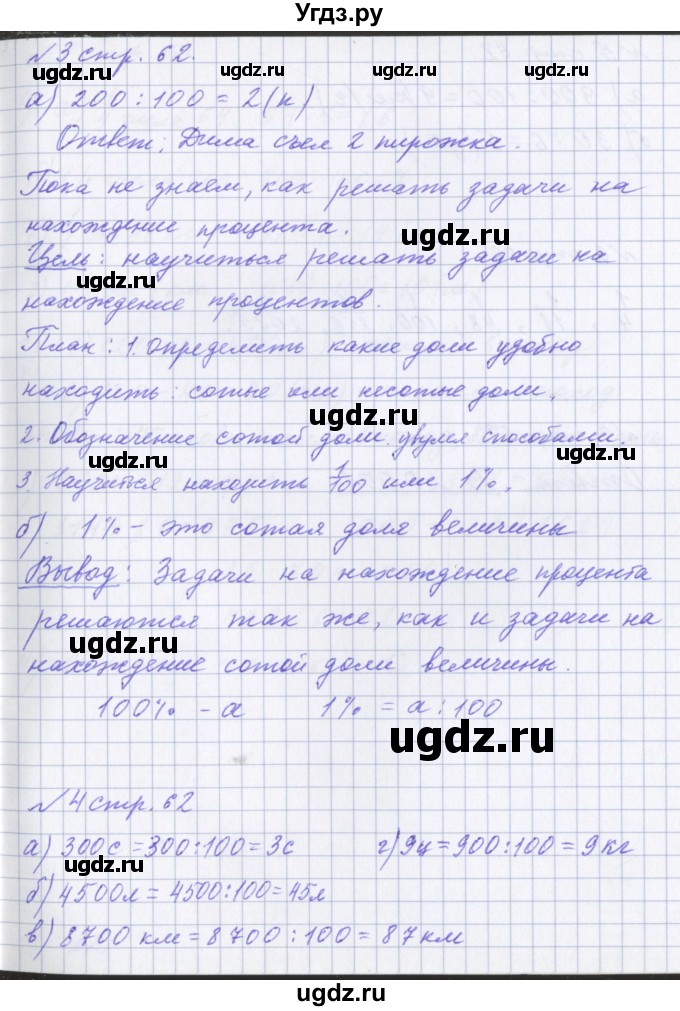 Угдз.ру
№3 стр. 62.
ugdz.ru ugdz.ru ugdz.ru
а) 200 : 100 = 2 (п)
Ответ: Дима съел 2 пирожка.
Пока не знаем, как решать задачи на
нахождение процента.
ugdz.ru
Цель: научиться решать задачи на
нахождение процентов.
План: 1. определить какие доли удобно
находить: сотые или несотые доли.
ugdz.ru
2. Обозначение сотой доли двумя способами.
ugdz.ru ugdz.ru
3. Научиться находить 1/100 или 1%.
б) 1% - это сотая доля величины
Вывод: Задачи на нахождение процента
решаются так же, как и задачи на
ugdz.ru
нахождение сотой доли величины.
100% - а 1% = а : 100
ugdz.ru
№4 стр. 62
а) 300с = 300:100 = 3с г) 9ц = 900:100 = 9кг
ugdz.ru
б) 4500л = 4500:100 = 45л
в) 8700 км = 8700 : 100 = 87км
ugdz.ru ugdz.ru
ugdz.ru